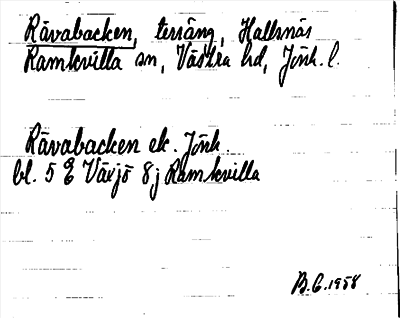 Rävabacken, terräng, Hallsnäs
Ramkvilla sn, Västra hd, Jönk. l.
Rävabacken ek. Jönk.
bl. 5 E Växjö 8j Ramkvilla
B.G. 1958